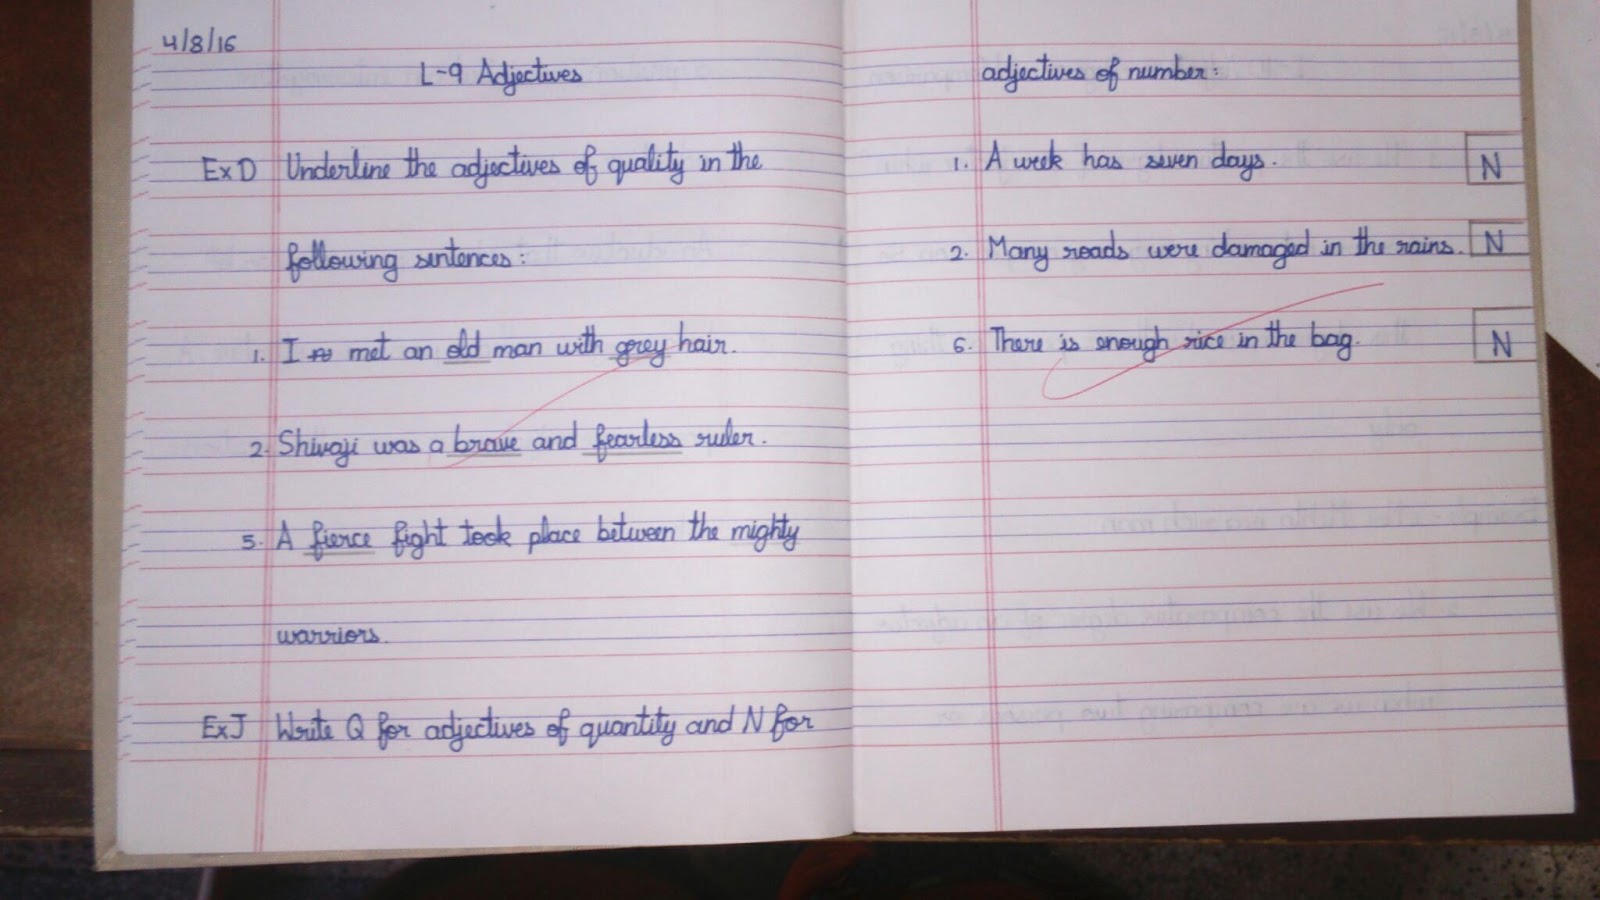 4/8/16
L-9 Adjectives
Ex D Underline the adjectives of quality in the
following sentences:
1. I met an old man with grey hair.
2. Shivaji was a brave and fearless ruler.
5. A fierce fight took place between the mighty
warriors.
Ex J Write Q for adjectives of quantity and N for
adjectives of number:
1. A week has seven days. N
2. Many roads were damaged in the rains. N
6. There is enough rice in the bag. N